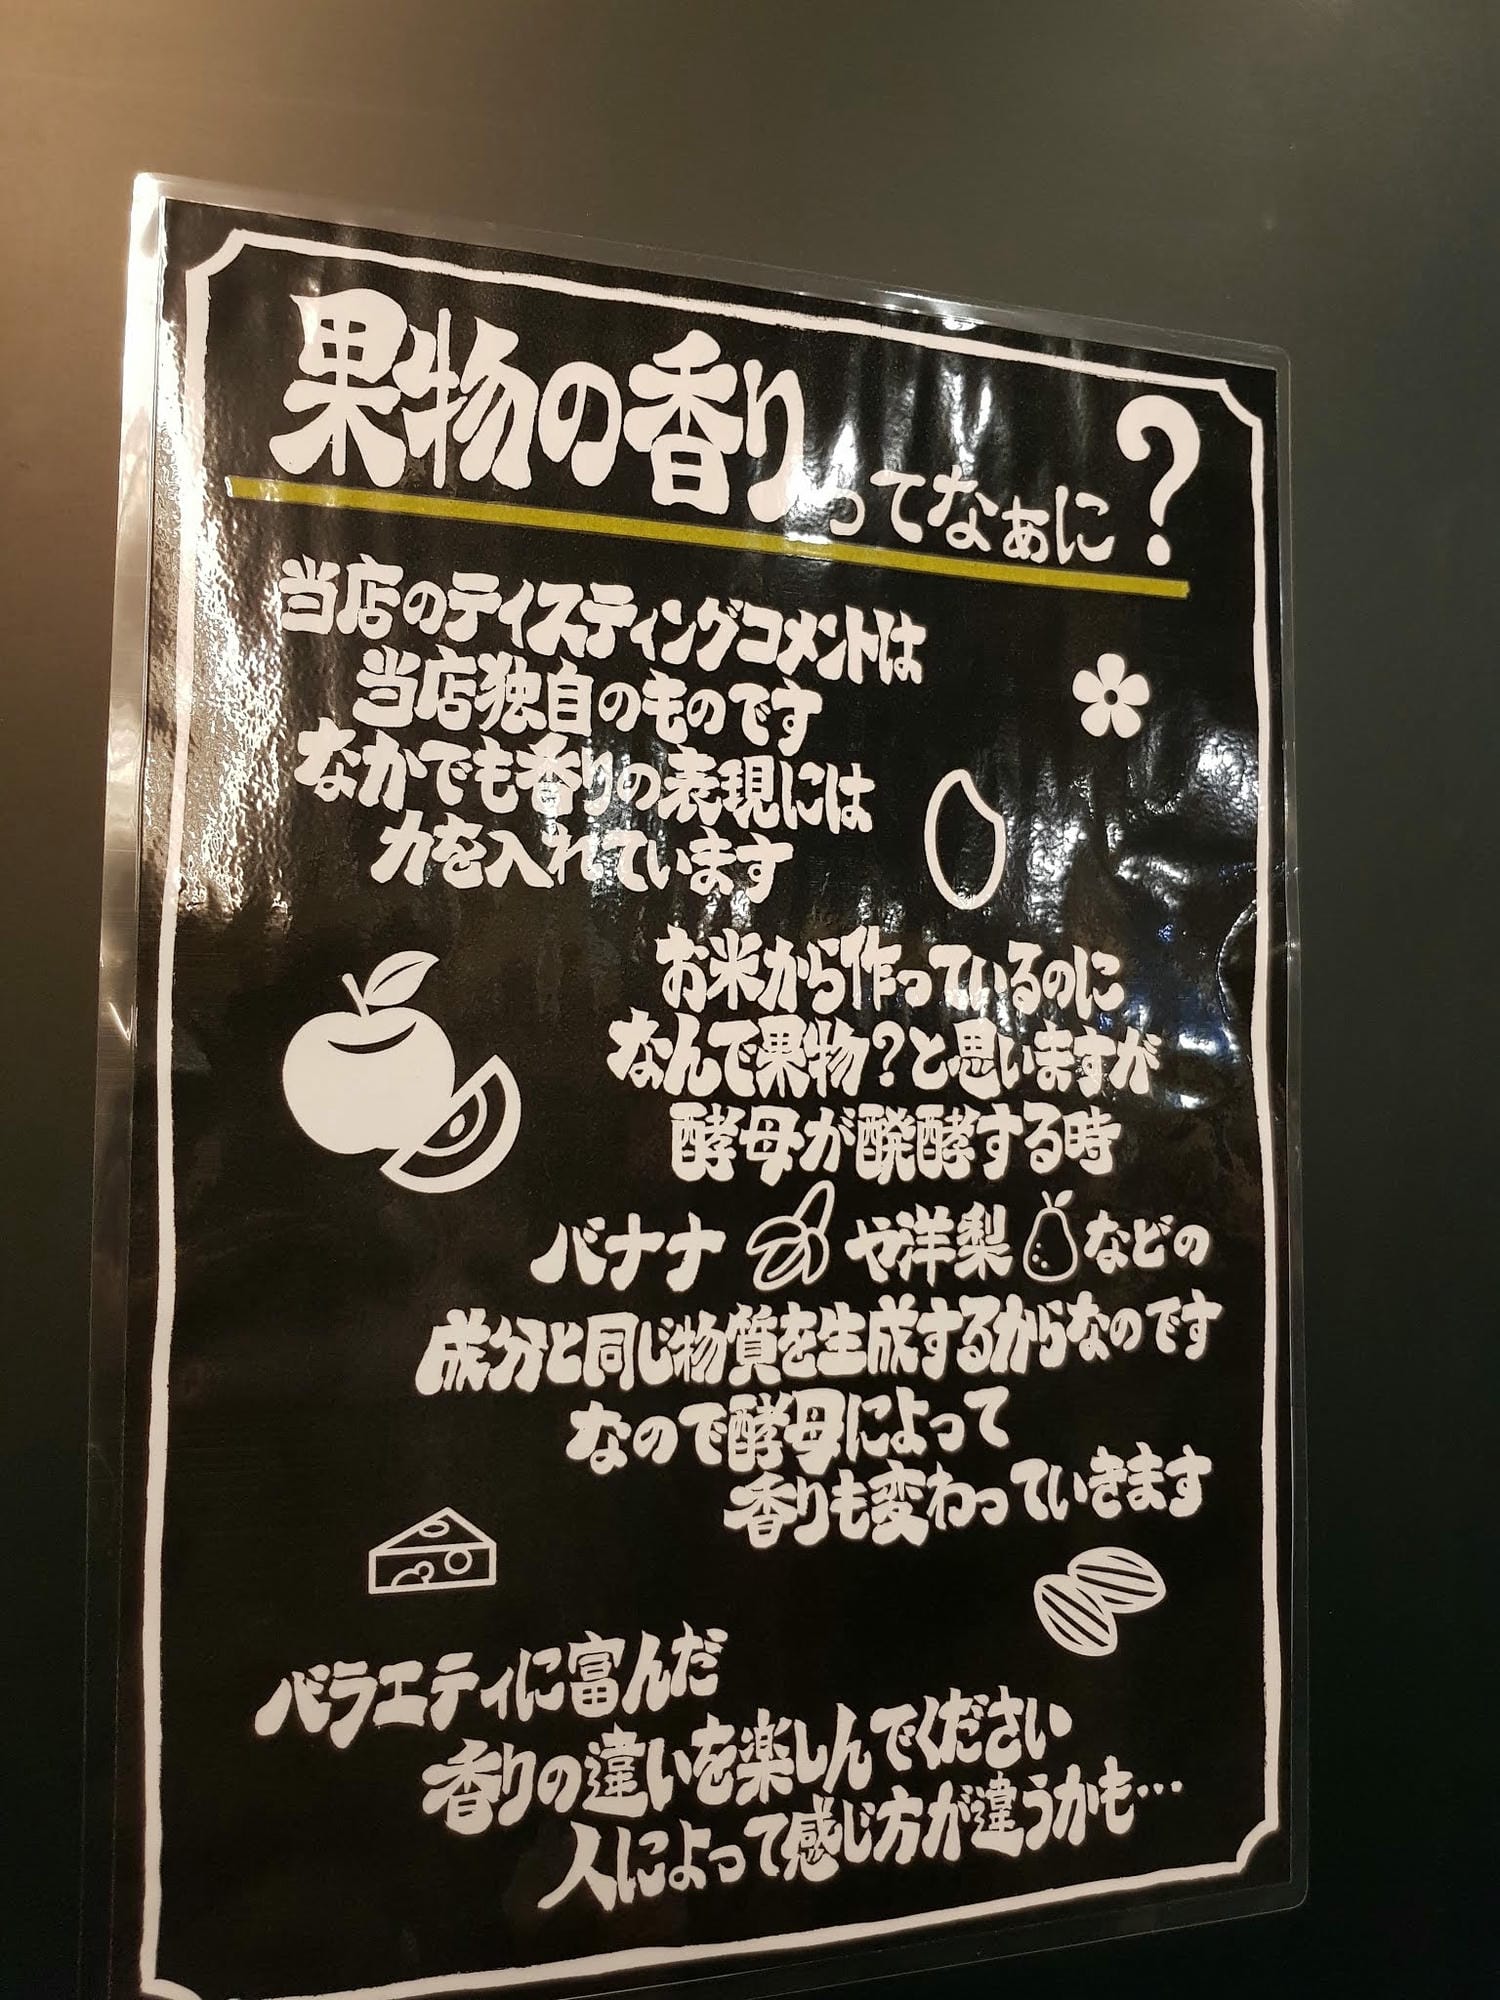 果物の香りってなぁに？
当店のテイスティングコメントは
当店独自のものです
なかでも香りの表現には
力を入れています
お米から作っているのに
なんで果物？と思いますが
酵母が醗酵する時
バナナや洋梨などの
成分と同じ物質を生成するからなのです
なので酵母によって
香りも変わっていきます
バラエティに富んだ
香りの違いを楽しんでください
人によって感じ方が違うかも…